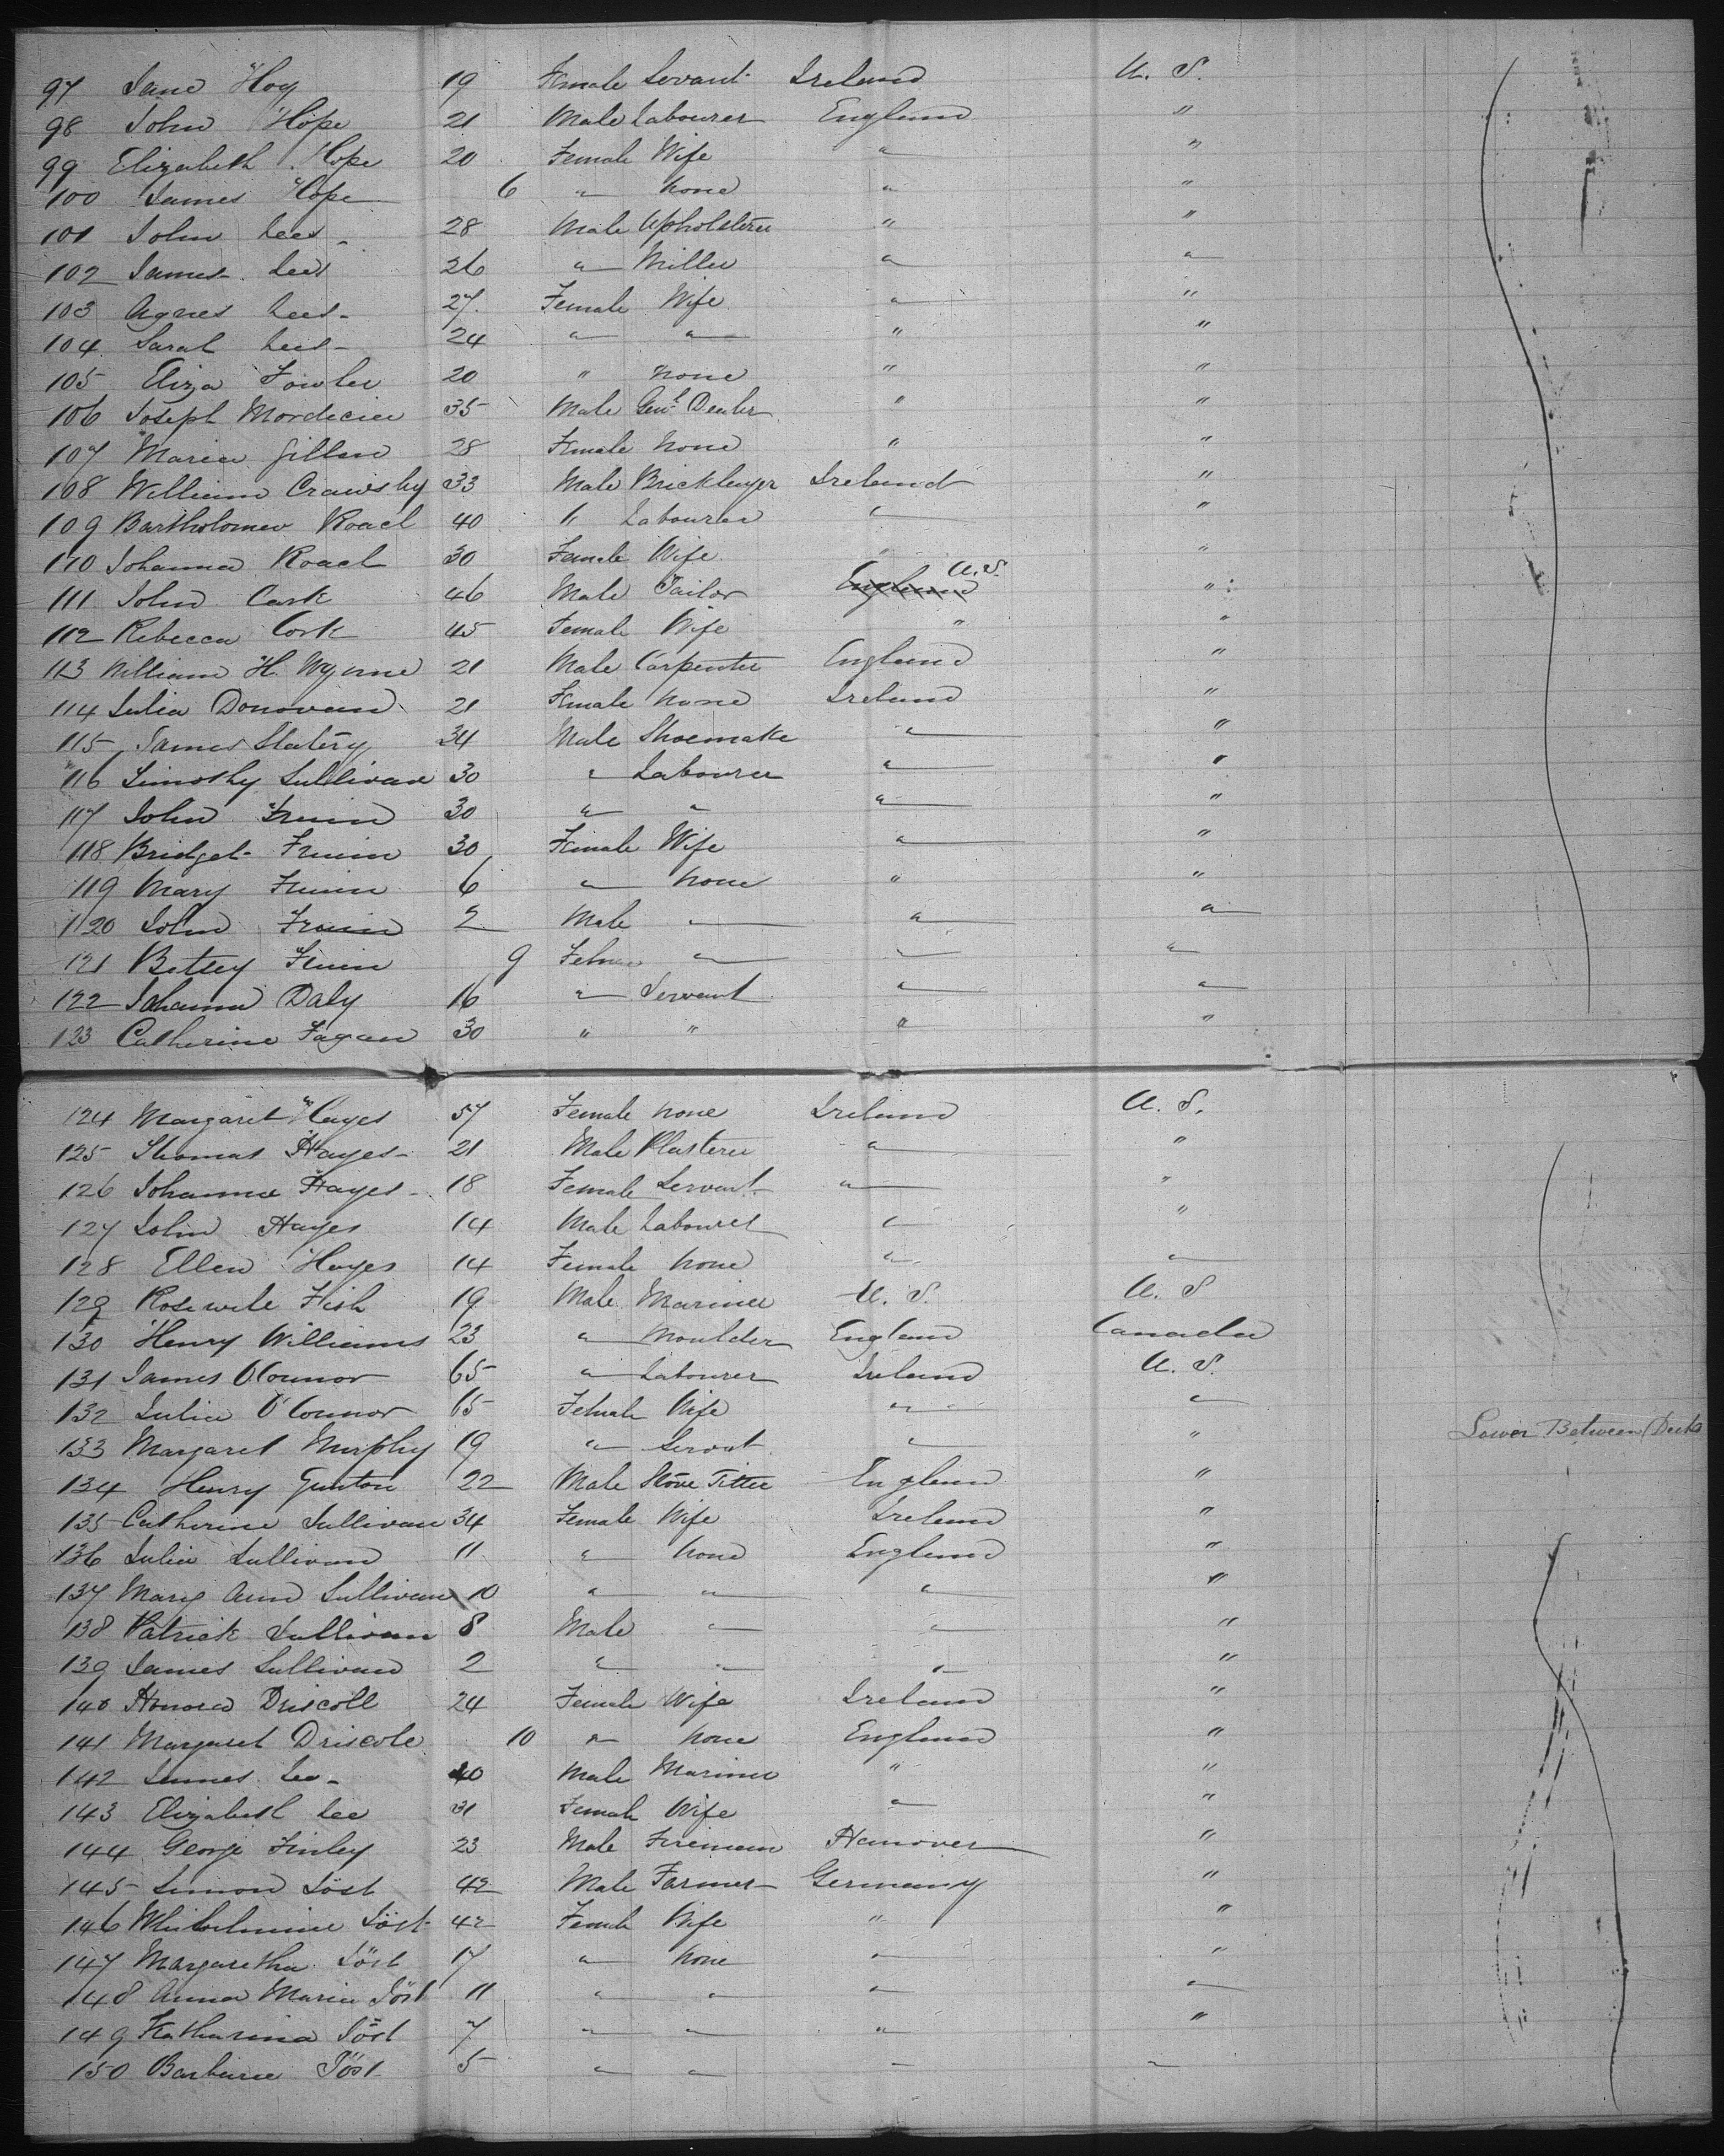 97 Jane Hoy 19 Female Servant Ireland U. S.
98 John Hope 21 Male Labourer England "
99 Elizabeth Hope 20 Female Wife " "
100 James Hope 6 " None " "
101 John Lees 28 Male Upholsterer " "
102 James Lees 26 " Miller " "
103 Agnes Lees 27 Female Wife " "
104 Sarah Lees 24 " " " "
105 Eliza Fowler 20 " None " "
106 Joseph Mordecia 35 Male Genl Dealer " "
107 Maria Gillan 28 Female None " "
108 William Crawsby 33 Male Bricklayer Ireland "
109 Bartholomew Roach 40 " Labourer " "
110 Johanna Roach 30 Female Wife " "
111 John Cark 46 Male Tailor England U.S. "
112 Rebecca Cork 45 Female Wife " "
113 William H. Wynne 21 Male Carpenter England "
114 Julia Donovan 21 Female None Ireland "
115 James Slatery 34 Male Shoemake " "
116 Timothy Sullivan 30 " Labourer " "
117 John 30 " " " "
118 Bridget 30 Female Wife " "
119 Mary 6 " None " "
120 John 2 Male " " "
121 Betsey 9 " " "
122 Johanna Daly 16 " Servant " "
123 Catherine Fagan 30 " " " "
124 Margaret Hayes 57 Female None Ireland U. S.
125 Thomas Hayes 21 Male Plasterer " "
126 Johanna Hayes 18 Female Servant " "
127 John Hayes 14 Male Labourer " "
128 Ellen Hayes 14 Female None " "
129 Fish 19 Male Mariner U. S. U. S
130 Henry Williams 23 " Moulder England Canada
131 James O'Connor 65 " Labourer Ireland U. S.
132 Julia O'Connor 65 Female Wife " "
133 Margaret Murphy 19 " Servat " " Lower Between Decks
134 Henry Gunton 22 Male Stove Fitter England "
135 Catherine Sullivan 34 Female Wife Ireland "
136 Julia Sullivan 11 " None England "
137 Mary Ann Sullivan 10 " " " "
138 Patrick Sullivan 8 Male " " "
139 James Sullivan 2 " " " "
140 Honora Driscoll 24 Female Wife Ireland "
141 Margaret Driscole 10 " None England "
142 James Lee 40 Male Mariner " "
143 Elizabeth Lee 31 Female Wife " "
144 George Finley 23 Male Fireman Hanover "
145 Simon Jöst 42 Male Farmer Germany "
146 Jöst 42 Female Wife " "
147 Margaretha Jöst 17 " None " "
148 Anna Maria Jöst 11 " " " "
149 Katharina Jöst 7 " " " "
150 Barbara Jöst 5 " " " "